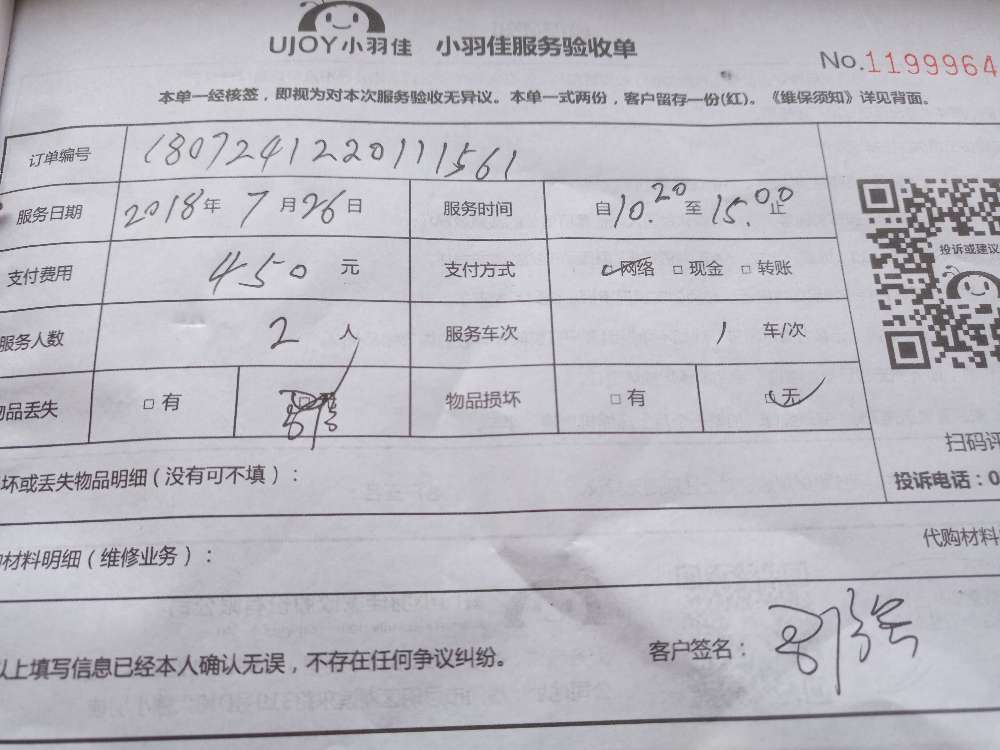 UJOY小羽佳 小羽佳服务验收单
No.1199964
本单一经核签，即视为对本次服务验收无异议。本单一式两份，客户留存一份(红)。《维保须知》详见背面。
订单编号 1807241220111561
服务日期 2018年 7月26日 服务时间 自10.20至15.00止
支付费用 450 元 支付方式 □网络 □现金 □转账
投诉或建议
服务人数 2 人 服务车次 1 车/次
品丢失 □有 物品损坏 □有 □无
扫码评
坏或丢失物品明细（没有可不填）：
投诉电话：0
材料明细（维修业务）：
代购材料
以上填写信息已经本人确认无误，不存在任何争议纠纷。
客户签名：